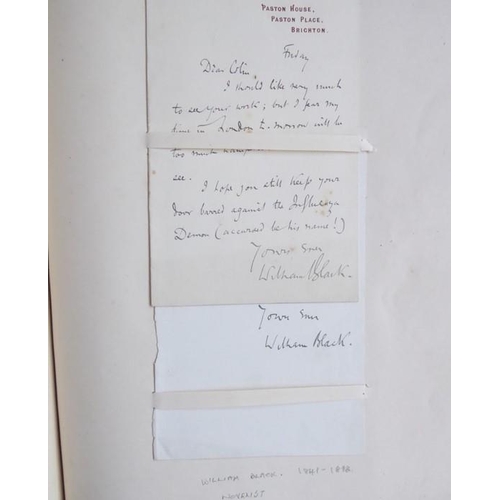 PASTON HOUSE,
PASTON PLACE,
BRIGHTON.
Friday
Dear Colin,
I should like very much
to see your work; but I fear my
time in London to-morrow will be
too much
see.
I hope you still keep your
door barred against the Influenza
Demon (accursed be his name!)
Yours ever
William Black.
Yours ever
William Black.
WILLIAM BLACK. 1841-1898
NOVELIST